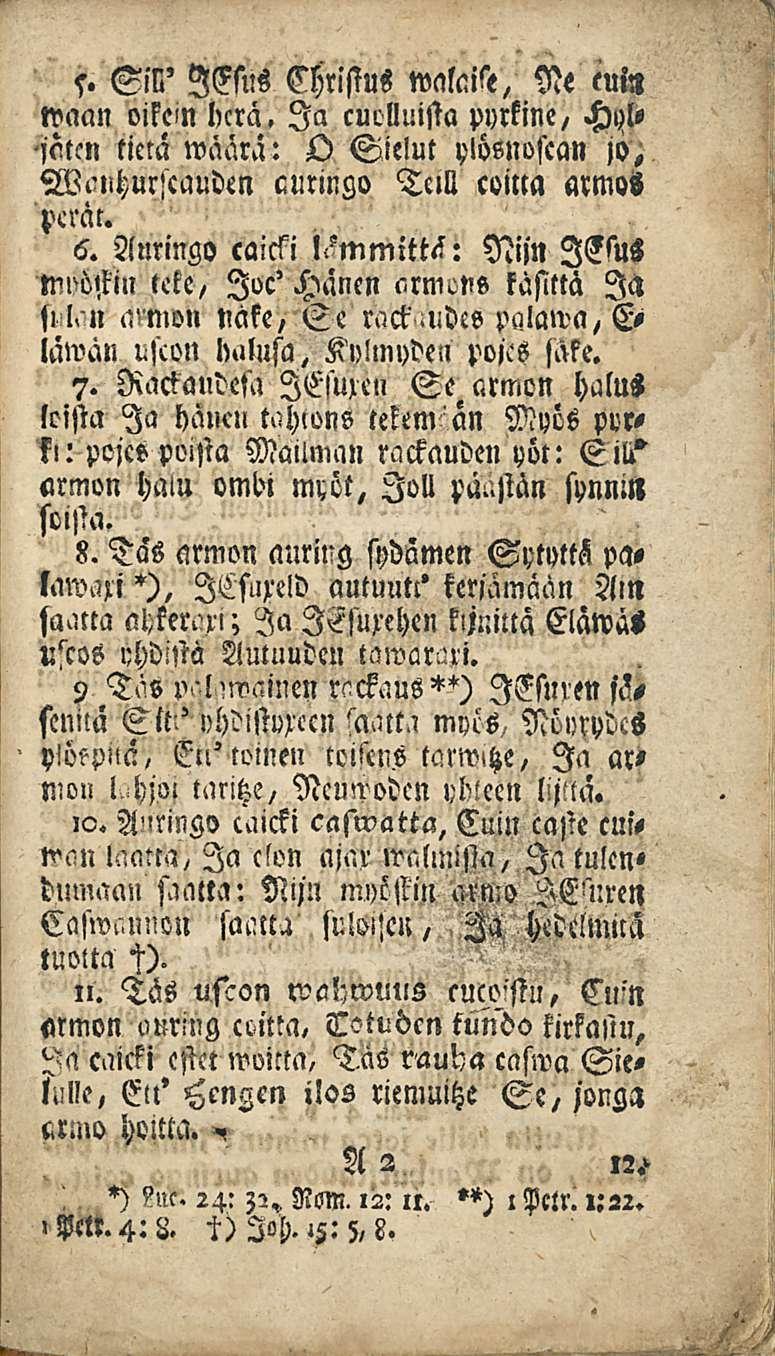 5. Sill' JEsus Christus walaise, Ne cuin
waan oikein herä. Ja cuolluista pyrkine, Hyl-
jäten tietä wäärä: O Sielut ylösnoscan jo,
Wanhurscauden auringo Teill coitta armos
perät.
6. Auringo caicki lämmittä: Nijn JEsus
myöskin teke, Joc' Hänen armons käsittä Ja
sulan armon näke, Se rackaudes palawa, E-
läwän uscon halusa, Kylmyden pojes säke.
7. Rackaudesa JEsuxen Se armon halus
loista Ja hänen tahtons tekemään Myös pyr-
ki: pojes poista Mailman rackauden yöt: Sill'
armon halu ombi myöt, Joll päästän synnin
soista.
8. Täs armon auring sydämen Sytyttä pa-
lawaxi *), JEsuxeld autuutt' kerjämään Ain
saatta ahkeraxi; Ja JEsuxehen kijnittä Eläwäs
uscos yhdistä Autuuden tawaraxi.
9 Täs palawainen rackaus **) JEsuxen jä-
senitä Siti' yhdistyxeen saatta myös, Nöyrydes
ylöspitä, Ett' toinen toisens tarwitze, Ja ar-
mon lahjoi taritze, Neuwoden yhteen lijttä.
10. Auringo caicki caswatta, Cuin caste cui-
wan laatta, Ja elon ajax walmista, Ja tulen-
dumaan saatta: Nijn myöskin armo JEsuxen
Caswannon saatta suloisen, Ja hedelmitä
tuotta †).
11. Täs uscon wahwuus cucoistu, Cuin
armon auring coitta, Totuden tundo kirkastu,
Ja caicki estet woitta, Täs rauha caswa Sie-
lulle, Ett' Hengen ilos riemuitze Se, jonga
armo hoitta.
A 2 12.
*) Luc. 24: 32. Rom. 12: 11. **) 1 Petr. 1:22.
1 Petr. 4: 8. †) Joh. 15: 5, 8.